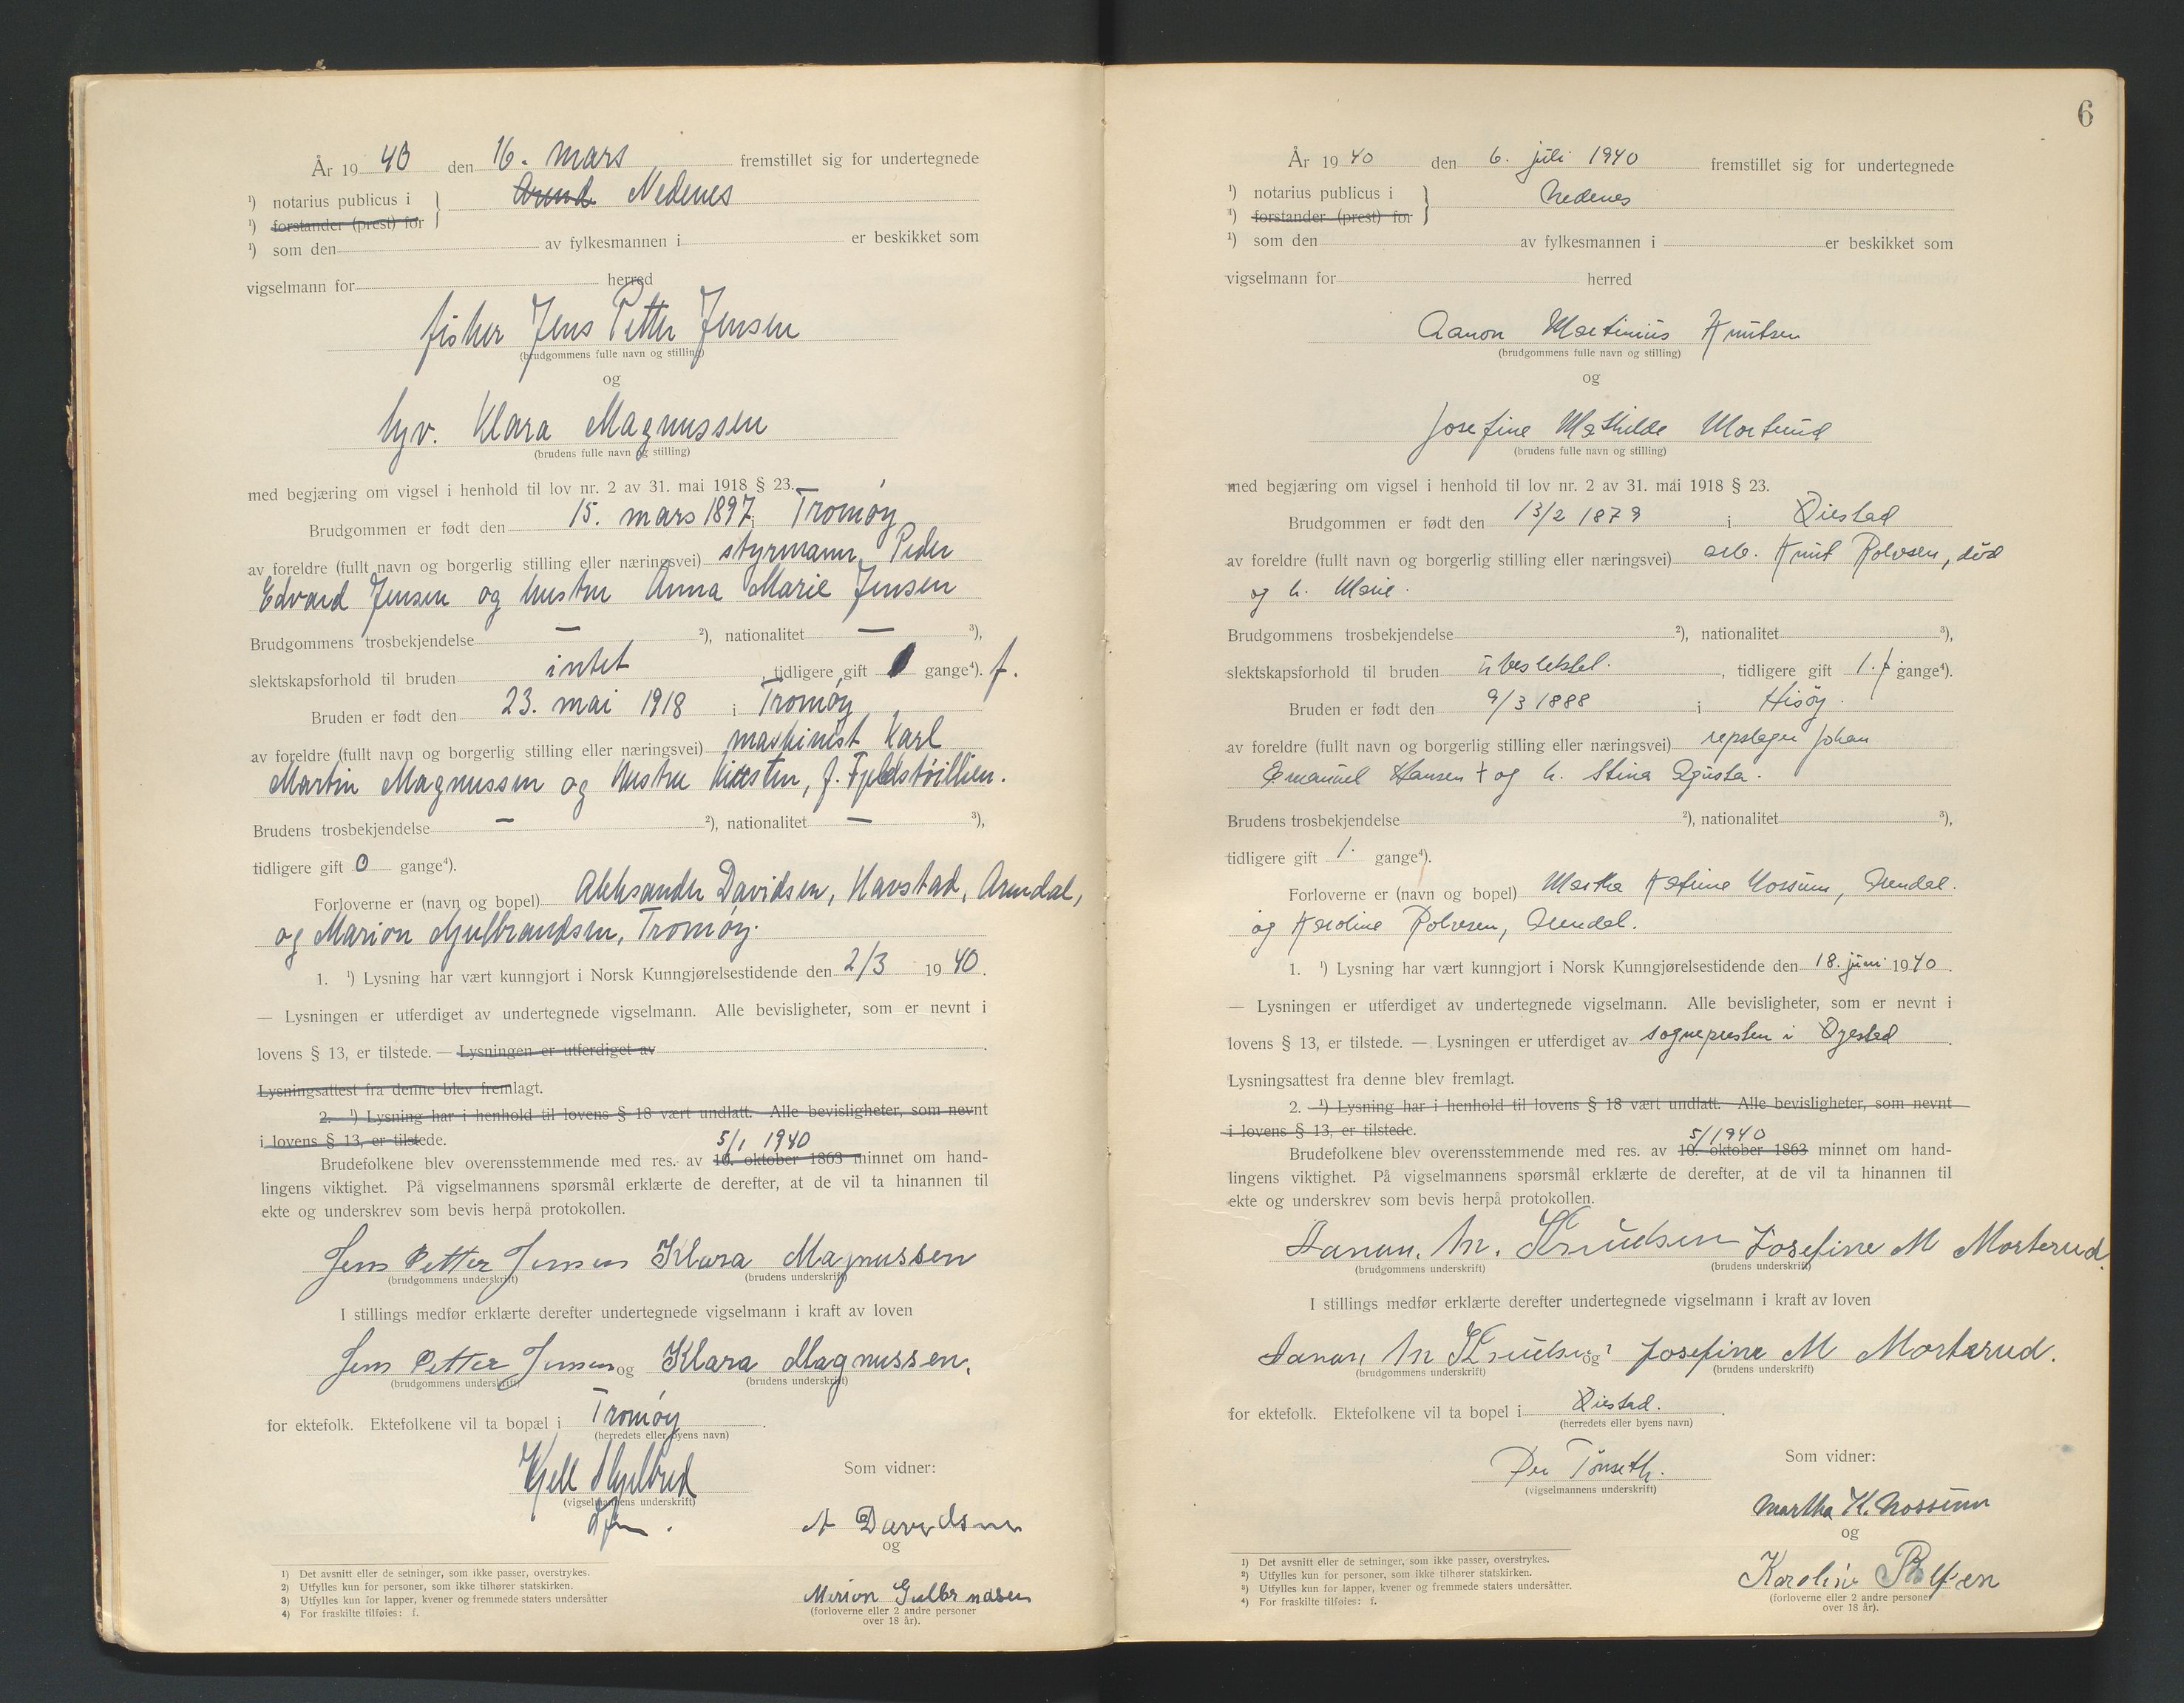 År 19 40 den 16. mars fremstillet sig for undertegnede
¹) notarius publicus i Arend Nedenes
¹) forstander (prest) for
¹) som den av fylkesmannen i er beskikket som
vigselmann for herred
fisker Jens Petter Jensen
(brudgommens fulle navn og stilling)
og
Klara Magnussen
(brudens fulle navn og stilling)
med begjæring om vigsel i henhold til lov nr. 2 av 31. mai 1918 § 23.
Brudgommen er født den 15. mars 1897 i Tromøy
av foreldre (fullt navn og borgerlig stilling eller næringsvei) styrmann Peder
Edvard Jensen og hustru Anna Marie Jensen
Brudgommens trosbekjendelse — ²), nationalitet — ³),
slektskapsforhold til bruden intet, tidligere gift gange⁴). f.
Bruden er født den 23. mai 1918 i Tromøy
av foreldre (fullt navn og borgerlig stilling eller næringsvei) maskinist Karl
Martin Magnussen og hustru f.
Brudens trosbekjendelse — ²), nationalitet — ³),
tidligere gift 0 gange⁴).
Forloverne er (navn og bopel) Aleksander Davidsen, Havstad, Arendal,
og Marion Gulbrandsen, Tromøy.
1. ¹) Lysning har vært kunngjort i Norsk Kunngjørelsestidende den 2/3 19 40.
— Lysningen er utferdiget av undertegnede vigselmann. Alle bevisligheter, som er nevnt i
lovens § 13, er tilstede. — Lysningen er utferdiget av
Lysningsattest fra denne blev fremlagt.
2. ¹) Lysning har i henhold til lovens § 18 vært undlatt. Alle bevisligheter, som nevnt
i lovens § 13, er tilstede.
5/1 1940
Brudefolkene blev overensstemmende med res. av 10. oktober 1863 minnet om hand-
lingens viktighet. På vigselmannens spørsmål erklærte de derefter, at de vil ta hinannen til
ekte og underskrev som bevis herpå protokollen.
Jens Petter Jensen Klara Magnussen
(brudgommens underskrift) (brudens underskrift)
I stillings medfør erklærte derefter undertegnede vigselmann i kraft av loven
Jens Petter Jensen og Klara Magnussen.
(brudgommens underskrift) (brudens underskrift)
for ektefolk. Ektefolkene vil ta bopæl i Tromøy.
(herredets eller byens navn)
Kjell
(vigselmannens underskrift)
Som vidner:
A Davidsen
og
Marion Gulbrandsen
(forloverne eller 2 andre personer
over 18 år).
1) Det avsnitt eller de setninger, som ikke passer, overstrykes.
2) Utfylles kun for personer, som ikke tilhører statskirken.
3) Utfylles kun for lapper, kvener og fremmede staters undersåtter
4) For fraskilte tilføies: f.
6
År 19 40 den 6. juli 1940 fremstillet sig for undertegnede
¹) notarius publicus i Nedenes
¹) forstander (prest) for
¹) som den av fylkesmannen i er beskikket som
vigselmann for herred
Aanon Martinius Knutsen
(brudgommens fulle navn og stilling)
og
Josefine Mathilde Morterud
(brudens fulle navn og stilling)
med begjæring om vigsel i henhold til lov nr. 2 av 31. mai 1918 § 23.
Brudgommen er født den 13/2 1879 i Øiestad
av foreldre (fullt navn og borgerlig stilling eller næringsvei) arb. Knut Rolvsen, død
og h. Marie.
Brudgommens trosbekjendelse ²), nationalitet ³),
slektskapsforhold til bruden ubeslektet., tidligere gift 1. f gange⁴).
Bruden er født den 9/3 1888 i Hisøy.
av foreldre (fullt navn og borgerlig stilling eller næringsvei) repslager Johan
Emanuel Hansen † og h. Stina Agusta.
Brudens trosbekjendelse ²), nationalitet ³),
tidligere gift 1. gange⁴).
Forloverne er (navn og bopel) Martha Nossum, Arendal.
og Karoline Rolvsen, Arendal.
1. ¹) Lysning har vært kunngjort i Norsk Kunngjørelsestidende den 18. juni 19 40.
— Lysningen er utferdiget av undertegnede vigselmann. Alle bevisligheter, som er nevnt i
lovens § 13, er tilstede. — Lysningen er utferdiget av sognepresten i Øyestad.
Lysningsattest fra denne blev fremlagt.
2. ¹) Lysning har i henhold til lovens § 18 vært undlatt. Alle bevisligheter, som nevnt
i lovens § 13, er tilstede.
5/1 1940
Brudefolkene blev overensstemmende med res. av 10. oktober 1863 minnet om hand-
lingens viktighet. På vigselmannens spørsmål erklærte de derefter, at de vil ta hinannen til
ekte og underskrev som bevis herpå protokollen.
Aanon. M. Knudsen Josefine M Morterud.
(brudgommens underskrift) (brudens underskrift)
I stillings medfør erklærte derefter undertegnede vigselmann i kraft av loven
Aanon M Knudsen og Josefine M Morterud.
(brudgommens underskrift) (brudens underskrift)
for ektefolk. Ektefolkene vil ta bopel i Øiestad.
(herredets eller byens navn)
Per Tønseth.
(vigselmannens underskrift)
Som vidner:
Martha K. Nossum
og
Karoline Rolfsen
(forloverne eller 2 andre personer
over 18 år).
1) Det avsnitt eller de setninger, som ikke passer, overstrykes.
2) Utfylles kun for personer, som ikke tilhører statskirken.
3) Utfylles kun for lapper, kvener og fremmede staters undersåtter.
4) For fraskilte tilføies: f.